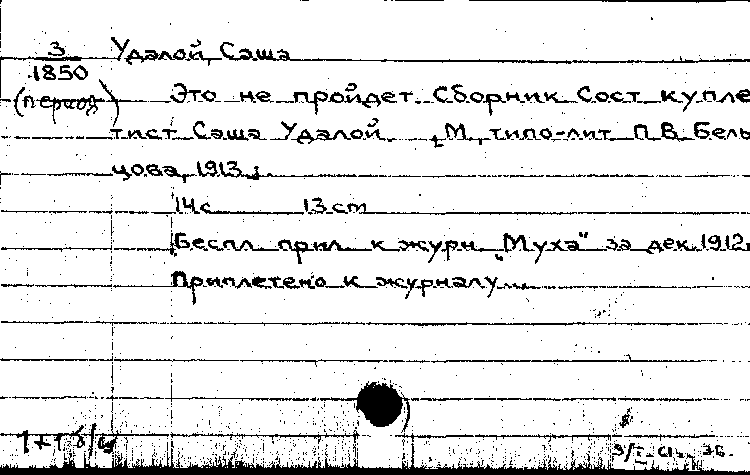 3 Удалой, Саша
1850
(период) Это не пройдет. Сборник Сост. купле
тист Саша Удалой. М., типо-лит П.В. Бель
цова, 1913.
14с. 13 cm
Беспл. прил. к журн. "Муха" за дек. 1912.
Приплетено к журналу...